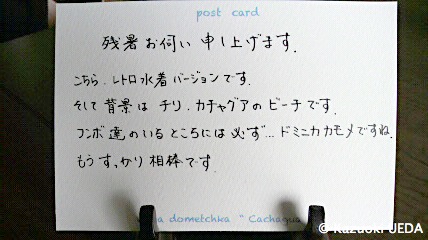 post card
残暑お伺い申し上げます.
こちら、レトロ水着バージョンです.
そして背景はチリ、カチャグアのビーチです.
フンボ達のいるところには必ず…ドミニカカモメですね.
もうすっかり相棒です.
dometchka " Cachagua
©Kazuoki UEDA